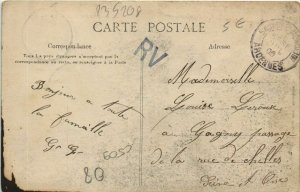 135208
5€
CARTE POSTALE
Correspondance
Adresse
Tous les pays étrangers n'acceptent pas la
correspondance au recto, se renseigner à la Poste
RV
ARDENNES
Bonjour a toute
la famille
G. G.
6052
80
Mademoiselle
Louise Leroux
au Gagny passage
de la rue de Chelles
Seine & Oise